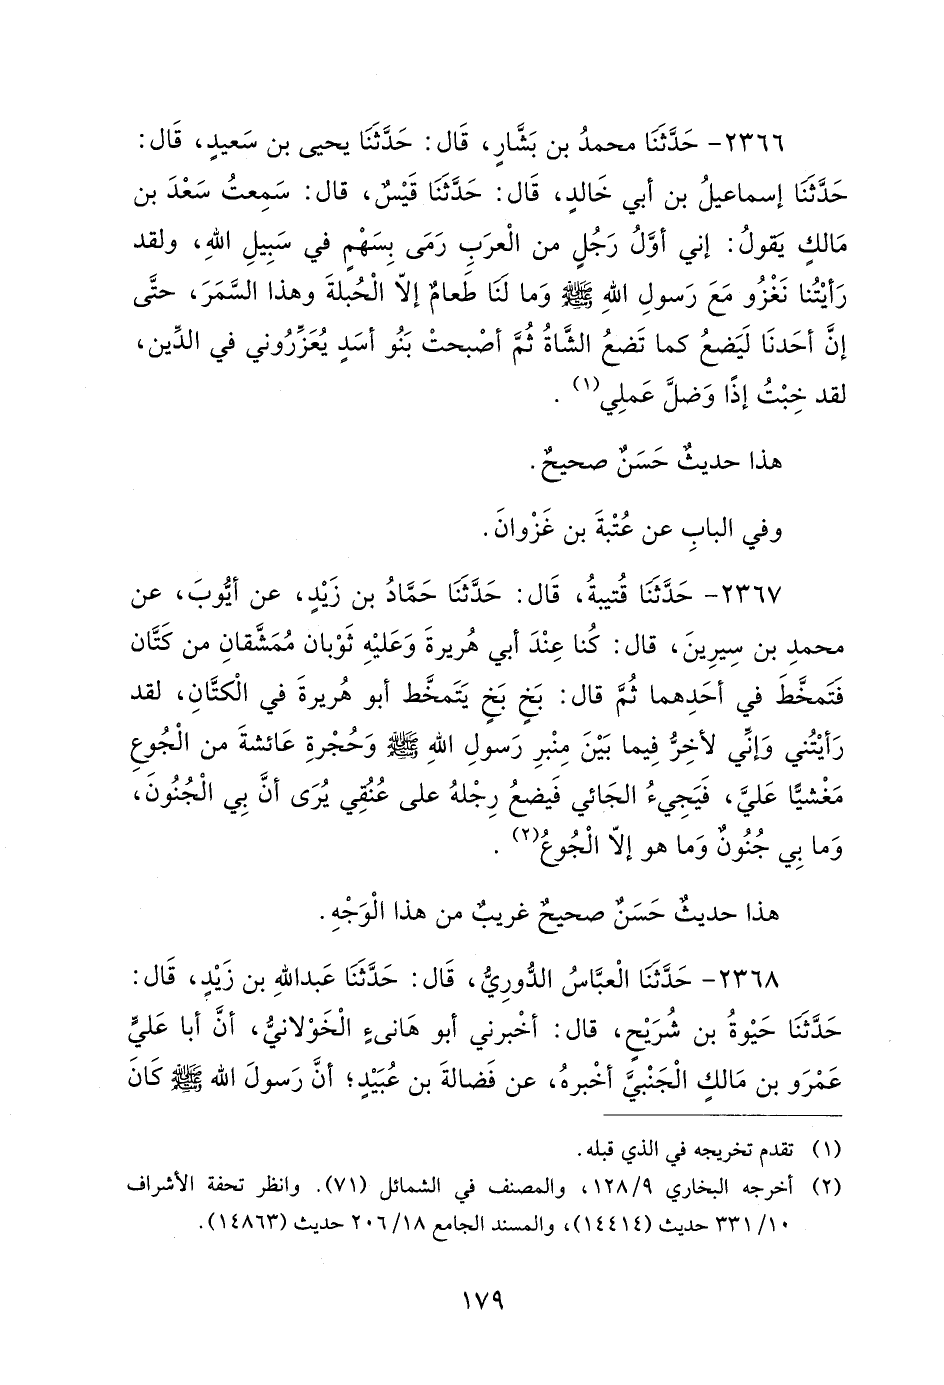 ٢٣٦٦- حَدَّثَنَا محمدُ بن بَشَّارٍ، قَال: حَدَّثَنَا يحيى بن سَعيدٍ، قَال:
حَدَّثَنَا إسماعيلُ بن أبي خَالدٍ، قَال: حَدَّثَنَا قَيْسٌ، قال: سَمِعتُ سَعْدَ بن
مَالكٍ يَقولُ: إني أوَّلُ رَجُلٍ من الْعربِ رَمَى بِسَهْمٍ في سَبِيلِ اللهِ، ولقد
رَأيْتُنا نَغْزُو مَعَ رَسولِ اللهِ ﷺ وَما لنَا طَعامٌ إلاّ الْحُبلةَ وهذا السَّمَرَ، حتَّى
إنَّ أحَدنَا لَيَضعُ كما تَضعُ الشَّاةُ ثُمَّ أصْبحتْ بَنُو أسَدٍ يُعَزِّرُوني في الدِّين،
لقد خِبْتُ إذًا وَضلَّ عَملِي(١).
هذا حديثٌ حَسَنٌ صحيحٌ.
وفي البابِ عن عُتْبةَ بن غَزْوانَ.
٢٣٦٧- حَدَّثَنَا قُتيبةُ، قَال: حَدَّثَنَا حَمَّادُ بن زَيْدٍ، عن أيُّوبَ، عن
محمدِ بن سِيرِينَ، قال: كُنا عِنْدَ أبي هُريرةَ وَعَليْهِ ثَوْبان مُمَشَّقانِ من كَتَّان
فَتَمخَّطَ في أحَدِهما ثُمَّ قال: بَخٍ بَخٍ يَتَمخَّط أبو هُريرةَ في الْكتَّانِ، لقد
رَأيْتُني وَإنِّي لأخِرُّ فِيما بَيْنَ مِنْبرِ رَسولِ اللهِ ﷺ وَحُجْرةِ عَائشةَ من الْجُوعِ
مَغْشيًّا عَليَّ، فَيَجِيءُ الجَائي فَيضعُ رِجْلهُ على عُنُقِي يُرَى أنَّ بِي الْجُنُونَ،
وَما بِي جُنُونٌ وَما هو إلاّ الْجُوعُ(٢).
هذا حديثٌ حَسَنٌ صحيحٌ غريبٌ من هذا الْوَجْهِ.
٢٣٦٨- حَدَّثَنَا الْعبَّاسُ الدُّورِيُّ، قَال: حَدَّثَنَا عَبدالله بن زَيْدٍ، قَال:
حَدَّثَنَا حَيْوةُ بن شُرَيْحٍ، قال: أخْبرني أبو هَانىءٍ الْخَوْلانيُّ، أنَّ أبا عَليٍّ
عَمْرَو بن مَالكٍ الْجَنْبيَّ أخْبرهُ، عن فَضالةَ بن عُبَيْدٍ؛ أنَّ رَسولَ الله ﷺ كَانَ
(١) تقدم تخريجه في الذي قبله.
(٢) أخرجه البخاري ١٢٨/٩، والمصنف في الشمائل (٧١). وانظر تحفة الأشراف
١٠/ ٣٣١ حديث (١٤٤١٤)، والمسند الجامع ١٨/ ٢٠٦ حديث (١٤٨٦٣).
١٧٩